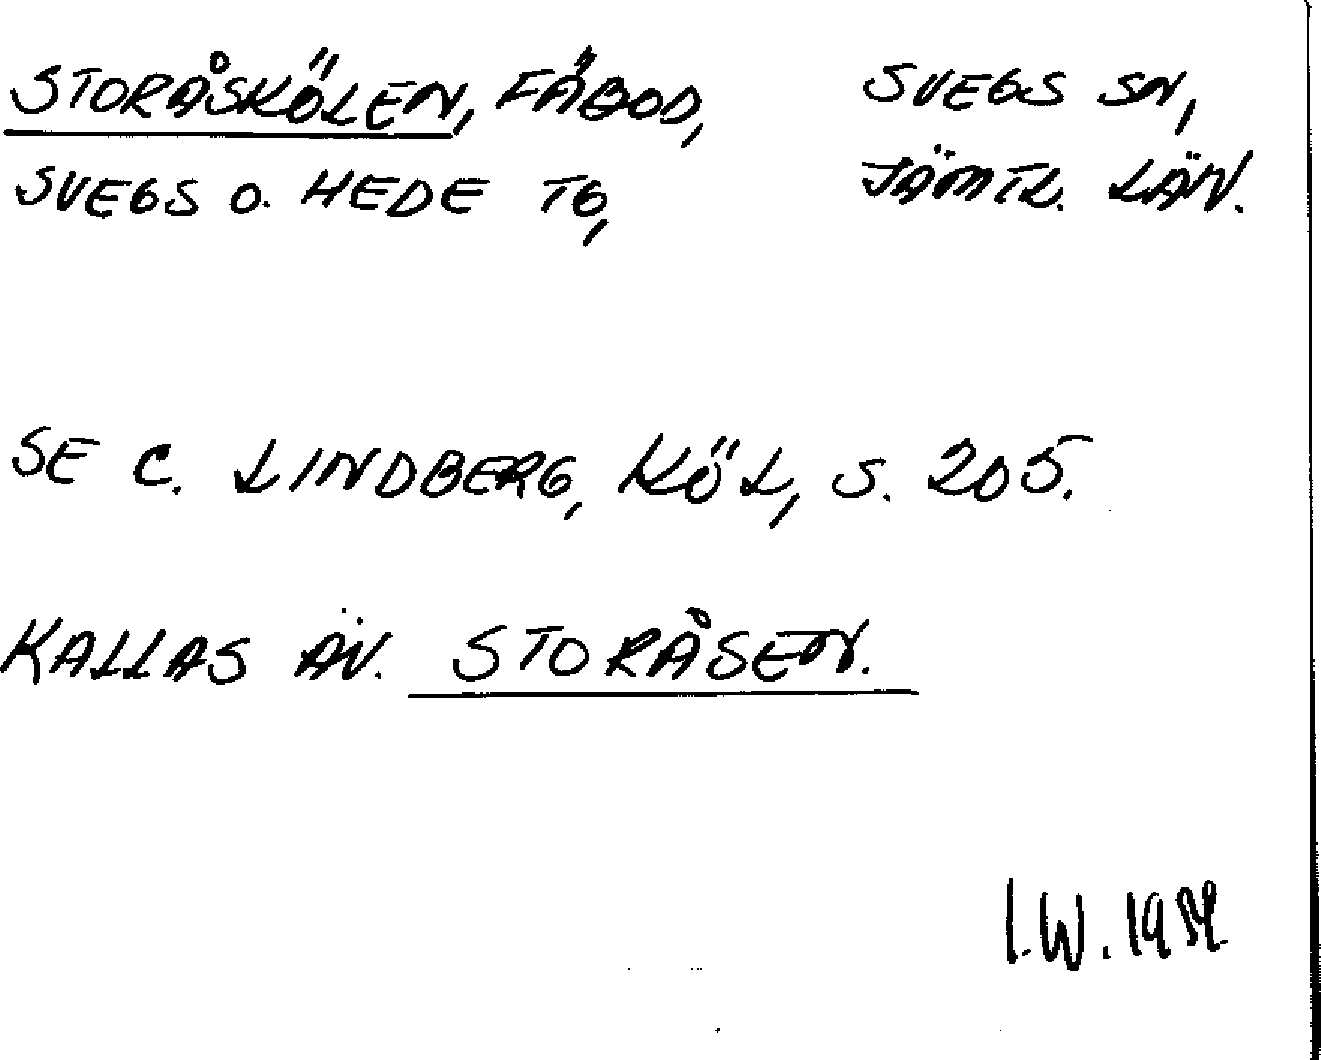 STORÅSKÖLEN, FÄBOD, SVEGS SN,
SVEGS O. HEDE TG, JÄMTL. LÄN.
SE C. LINDBERG, KÖL, S. 205.
KALLAS ÄV. STORÅSEN.
I.W.